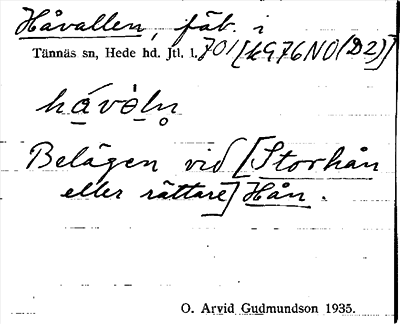 Håvallen, fäb. i
Tännäs sn, Hede hd. Jtl. l. 701 [kG76NO(D2)]
hávȧlṇ
Belägen vid [Storhån
eller rättare] Hån.
O. Arvid Gudmundson 1935.